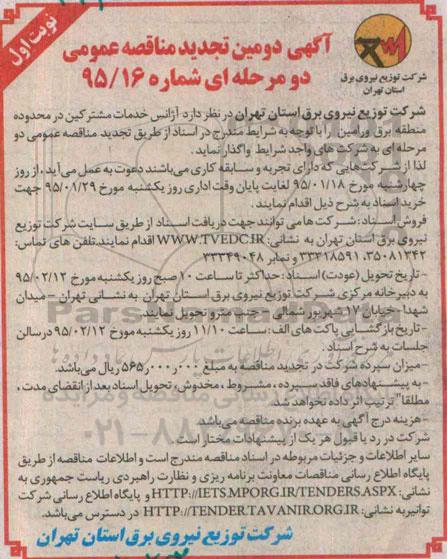 نوبت اول
شرکت توزیع نیروی برق
استان تهران
آگهی دومین تجدید مناقصه عمومی
دو مرحله ای شماره ۹۵/۱۶
شرکت توزیع نیروی برق استان تهران در نظر دارد آژانس خدمات مشترکین در محدوده
منطقه برق ورامین را با توجه به شرایط مندرج در اسناد از طریق تجدید مناقصه عمومی دو
مرحله ای به شرکت های واجد شرایط واگذار نماید.
لذا از شرکت‌هایی که دارای تجربه و سابقه کاری می‌باشند دعوت به عمل می‌آید، از روز
چهارشنبه مورخ ۹۵/۰۱/۱۸ لغایت پایان وقت اداری روز یکشنبه مورخ ۹۵/۰۱/۲۹ جهت
خرید اسناد به شرح ذیل اقدام نمایند.
فروش اسناد: شرکت ها می توانند جهت دریافت اسناد از طریق سایت شرکت توزیع
نیروی برق استان تهران به نشانی: WWW.TVEDC.IR اقدام نمایند. تلفن های تماس:
۳۵۰۸۱۳۴۲، ۳۳۳۱۸۵۹۱ و نمابر ۳۳۳۴۹۰۴۸
- تاریخ تحویل (عودت) اسناد: حداکثر تا ساعت ۱۰ صبح روز یکشنبه مورخ ۹۵/۰۲/۱۲
به دبیرخانه مرکزی شرکت توزیع نیروی برق استان تهران به نشانی تهران - میدان
شهدا - خیابان ۱۷ شهریور شمالی - جنب مترو تحویل نمایند.
- تاریخ بازگشایی پاکت های الف: ساعت ۱۱/۱۰ روز یکشنبه مورخ ۹۵/۰۲/۱۲ در سالن
جلسات به شرح اسناد.
- میزان سپرده شرکت در تجدید مناقصه به مبلغ ۵۶۵٫۰۰۰٫۰۰۰ ریال می‌باشد.
- به پیشنهادهای فاقد سپرده، مشروط، مخدوش، تحویل اسناد بعد از انقضای مدت،
مطلقا" ترتیب اثر داده نخواهد شد.
- هزینه درج آگهی به عهده برنده مناقصه می باشد.
شرکت در رد یا قبول هر یک از پیشنهادات مختار است.
سایر اطلاعات و جزئیات مربوطه در اسناد مناقصه مندرج است و اطلاعات مناقصه از طریق
پایگاه اطلاع رسانی مناقصات معاونت برنامه ریزی و نظارت راهبردی ریاست جمهوری به
نشانی: HTTP://IETS.MPORG.IR/TENDERS.ASPX و پایگاه اطلاع رسانی شرکت
توانیر به نشانی: HTTP://TENDER.TAVANIR.ORG.IR در دسترس می‌باشد.
شرکت توزیع نیروی برق استان تهران